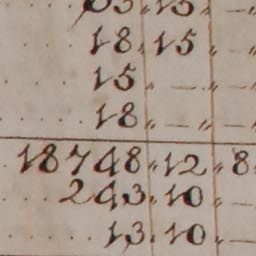 18 " 15 " —
15 " — " —
18 " — " —
18748 " 12 " 8
243 . 10 " —
13 . 10 " —